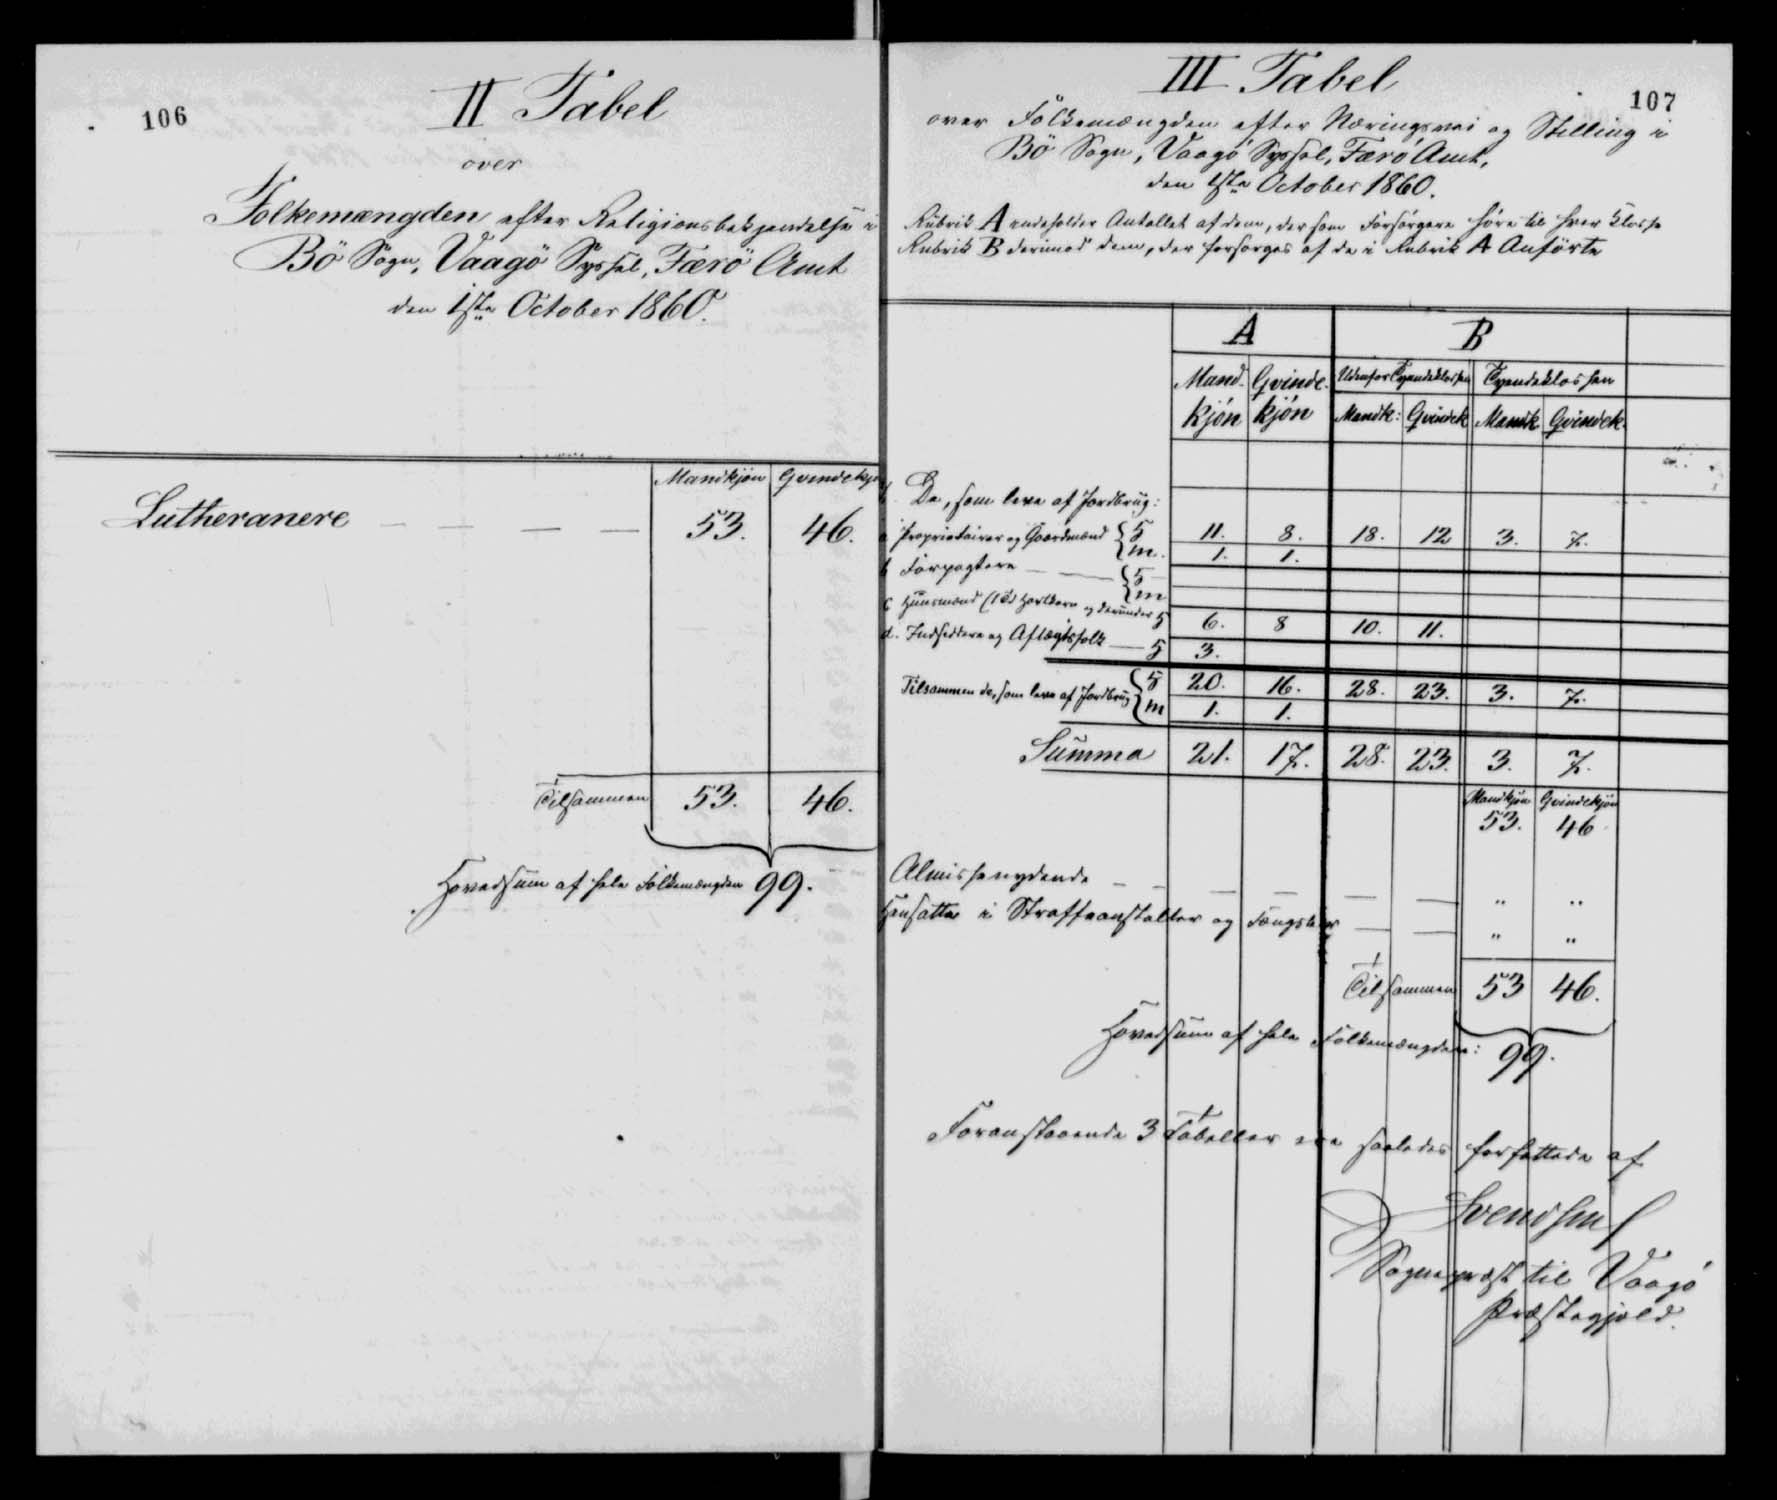 106
II Tabel
over
Folkemængden efter Religionsbekjendelse i
Bö Sogn, Vaagö Syssel, Færö Amt
den 1ste October 1860.
Mandkjön Qvindekjö
Lutheranere 53. 46.
Tilsammen 53. 46.
Hovedsum af hele Folkemængden 99.
107
III Tabel
over Folkemængden efter Næringsvei og Stilling i
Bö Sogn, Vaagö Syssel, Færö Amt,
den 1ste October 1860.
Rubrik A indeholder Antallet af dem, der som Forsörgere höre til hver Klasse
Rubrik B derimod dem, der forsörges af de i Rubrik A Anförte
A B
Mand- Qvinde- Udenfor Tyendeklassen Tyendeklassen
kjön kjön Mandk: Qvindek Mandk Qvindek.
De, som leve af Jordbrug:
a Proprietairer og Gaardmænd { 5 11. 8. 18. 12 3. 7.
{ m. 1. 1.
b Forpagtere { 5
{ m
c Huusmænd (1 Td Hartkorn og derunder 5 6. 8 10. 11.
d. Indsiddere og Aftægtsfolk 5 3.
Tilsammen de, som leve af Jordbrug { 5 20. 16. 28. 23. 3. 7.
{ m 1. 1.
Summa 21. 17. 28. 23. 3. 7.
Mandkjön Qvindekjön
53. 46
Almissenydende " "
Hensatte i Straffeanstalter og Fængsler " "
Tilsammen 53 46.
Hovedsum af hele Folkemængden: 99.
Foranstaaende 3 Tabeller ere saaledes forfattede af
Svendsen
Sognepræst til Vaagö
Præstegjeld.